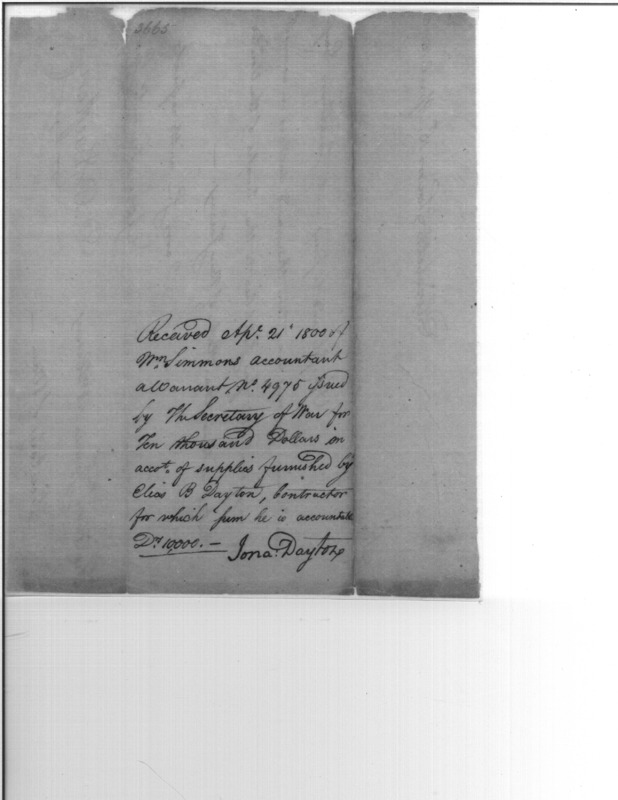 3665
Received Apr. 21st 1800 of
Wm Simmons accountant
a Warrant, No. 4975 issued
by The Secretary of War for
Ten thousand Dollars on
accot. of supplies furnished by
Elias B Dayton, Contractor
for which sum he is accountable
Drs 10,000.—
Jona: Dayton